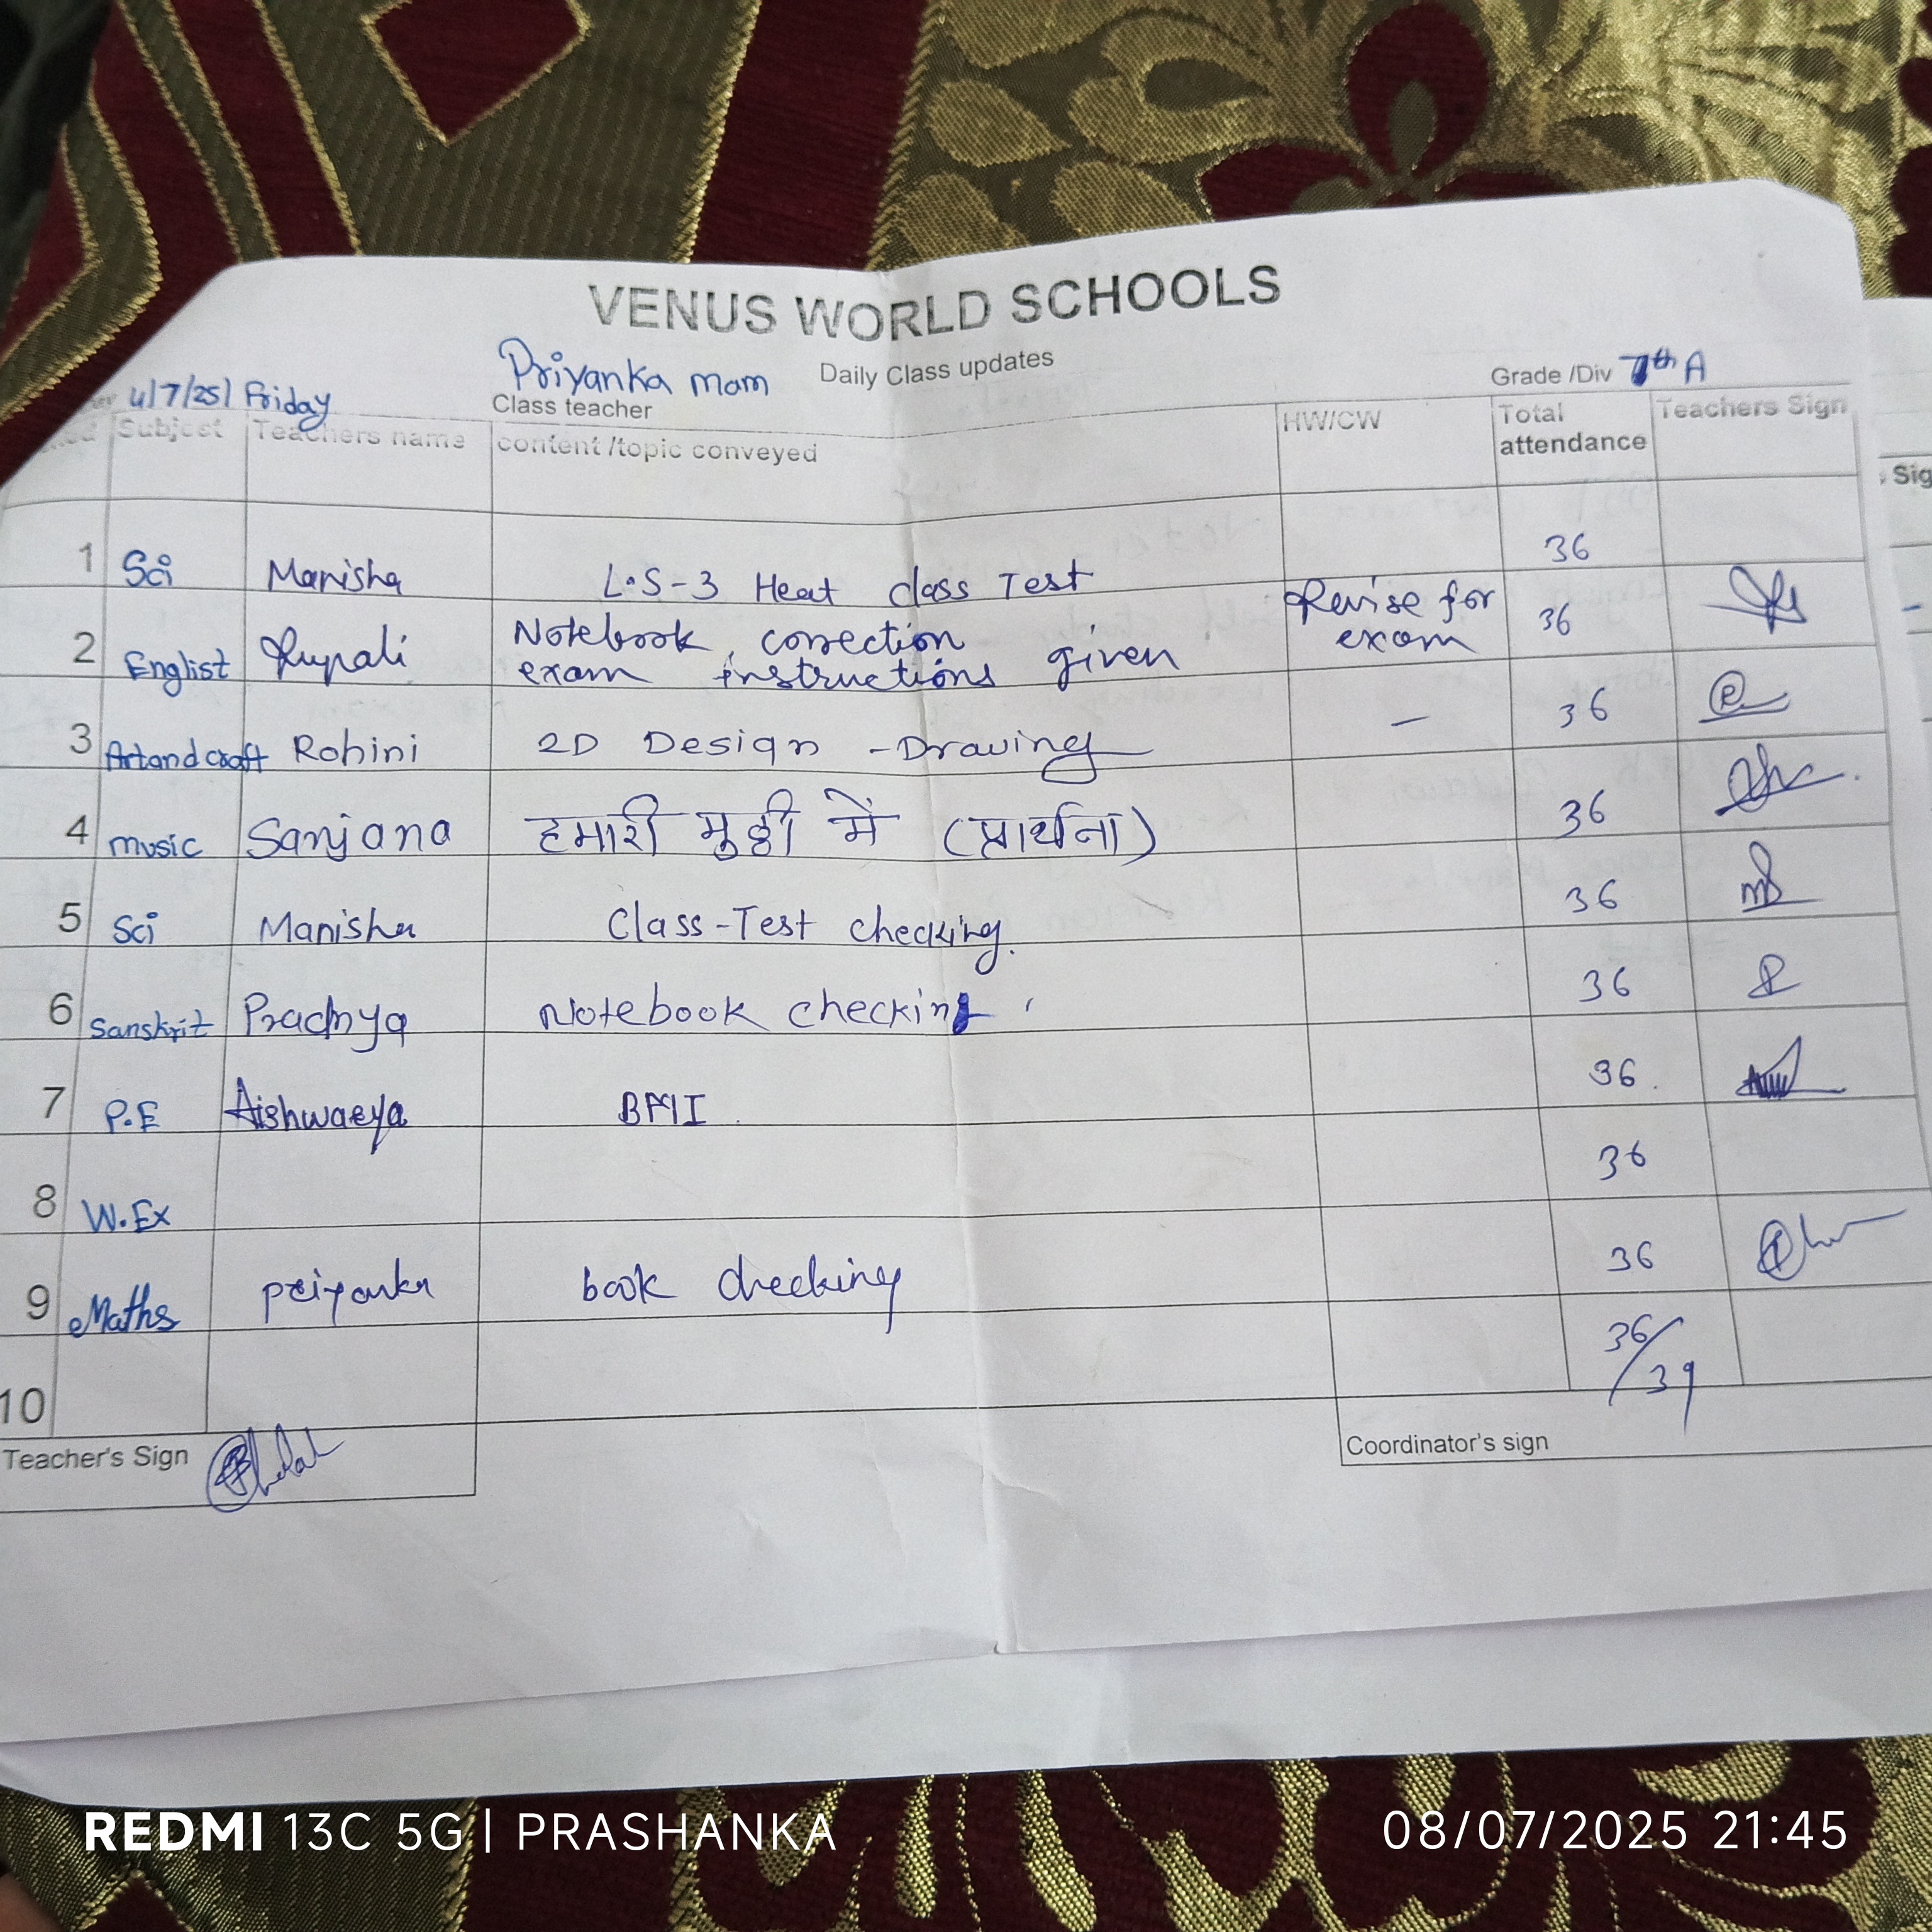 VENUS WORLD SCHOOLS
Priyanka mam Daily Class updates
4/7/25| Friday Class teacher Grade /Div 7th A
Subject Teachers name content /topic conveyed HW/CW Total attendance Teachers Sign
Sig
1 Sci Manisha L.S-3 Heat class Test 36
2 Englist Rupali Notebook, correction Revise for 36
exam instructions given exam
3 Art and craft Rohini 2D Design -Drawing — 36
4 music Sanjana हमारी मुठ्ठी में (प्रार्थना) 36
5 Sci Manisha Class-Test checking. 36
6 Sanskrit Pradnya Notebook checking 36
7 P.E Aishwarya BMI. 36.
8 W.Ex 36
9 Maths priyanka book checking 36
10 36/39
Teacher's Sign Coordinator's sign
REDMI 13C 5G | PRASHANKA 08/07/2025 21:45